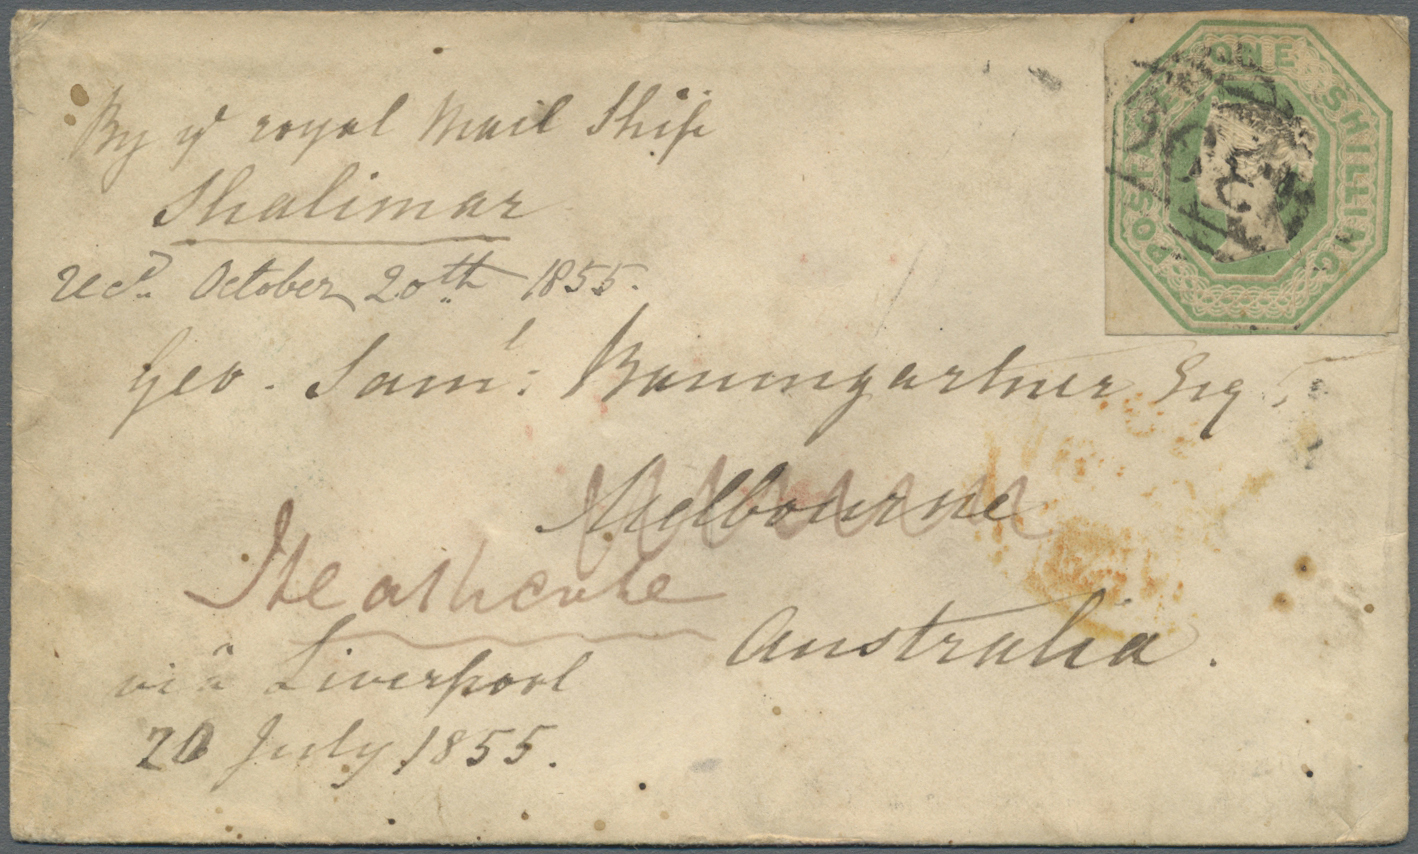 By ye royal Mail Ship
Shalimar
recd. October 20th 1855.
Geo. Saml: Baumgartner Esqr,
Melbourne
Heathcote
Australia.
via Liverpool
20 July 1855.
POSTAGE ONE SHILLING